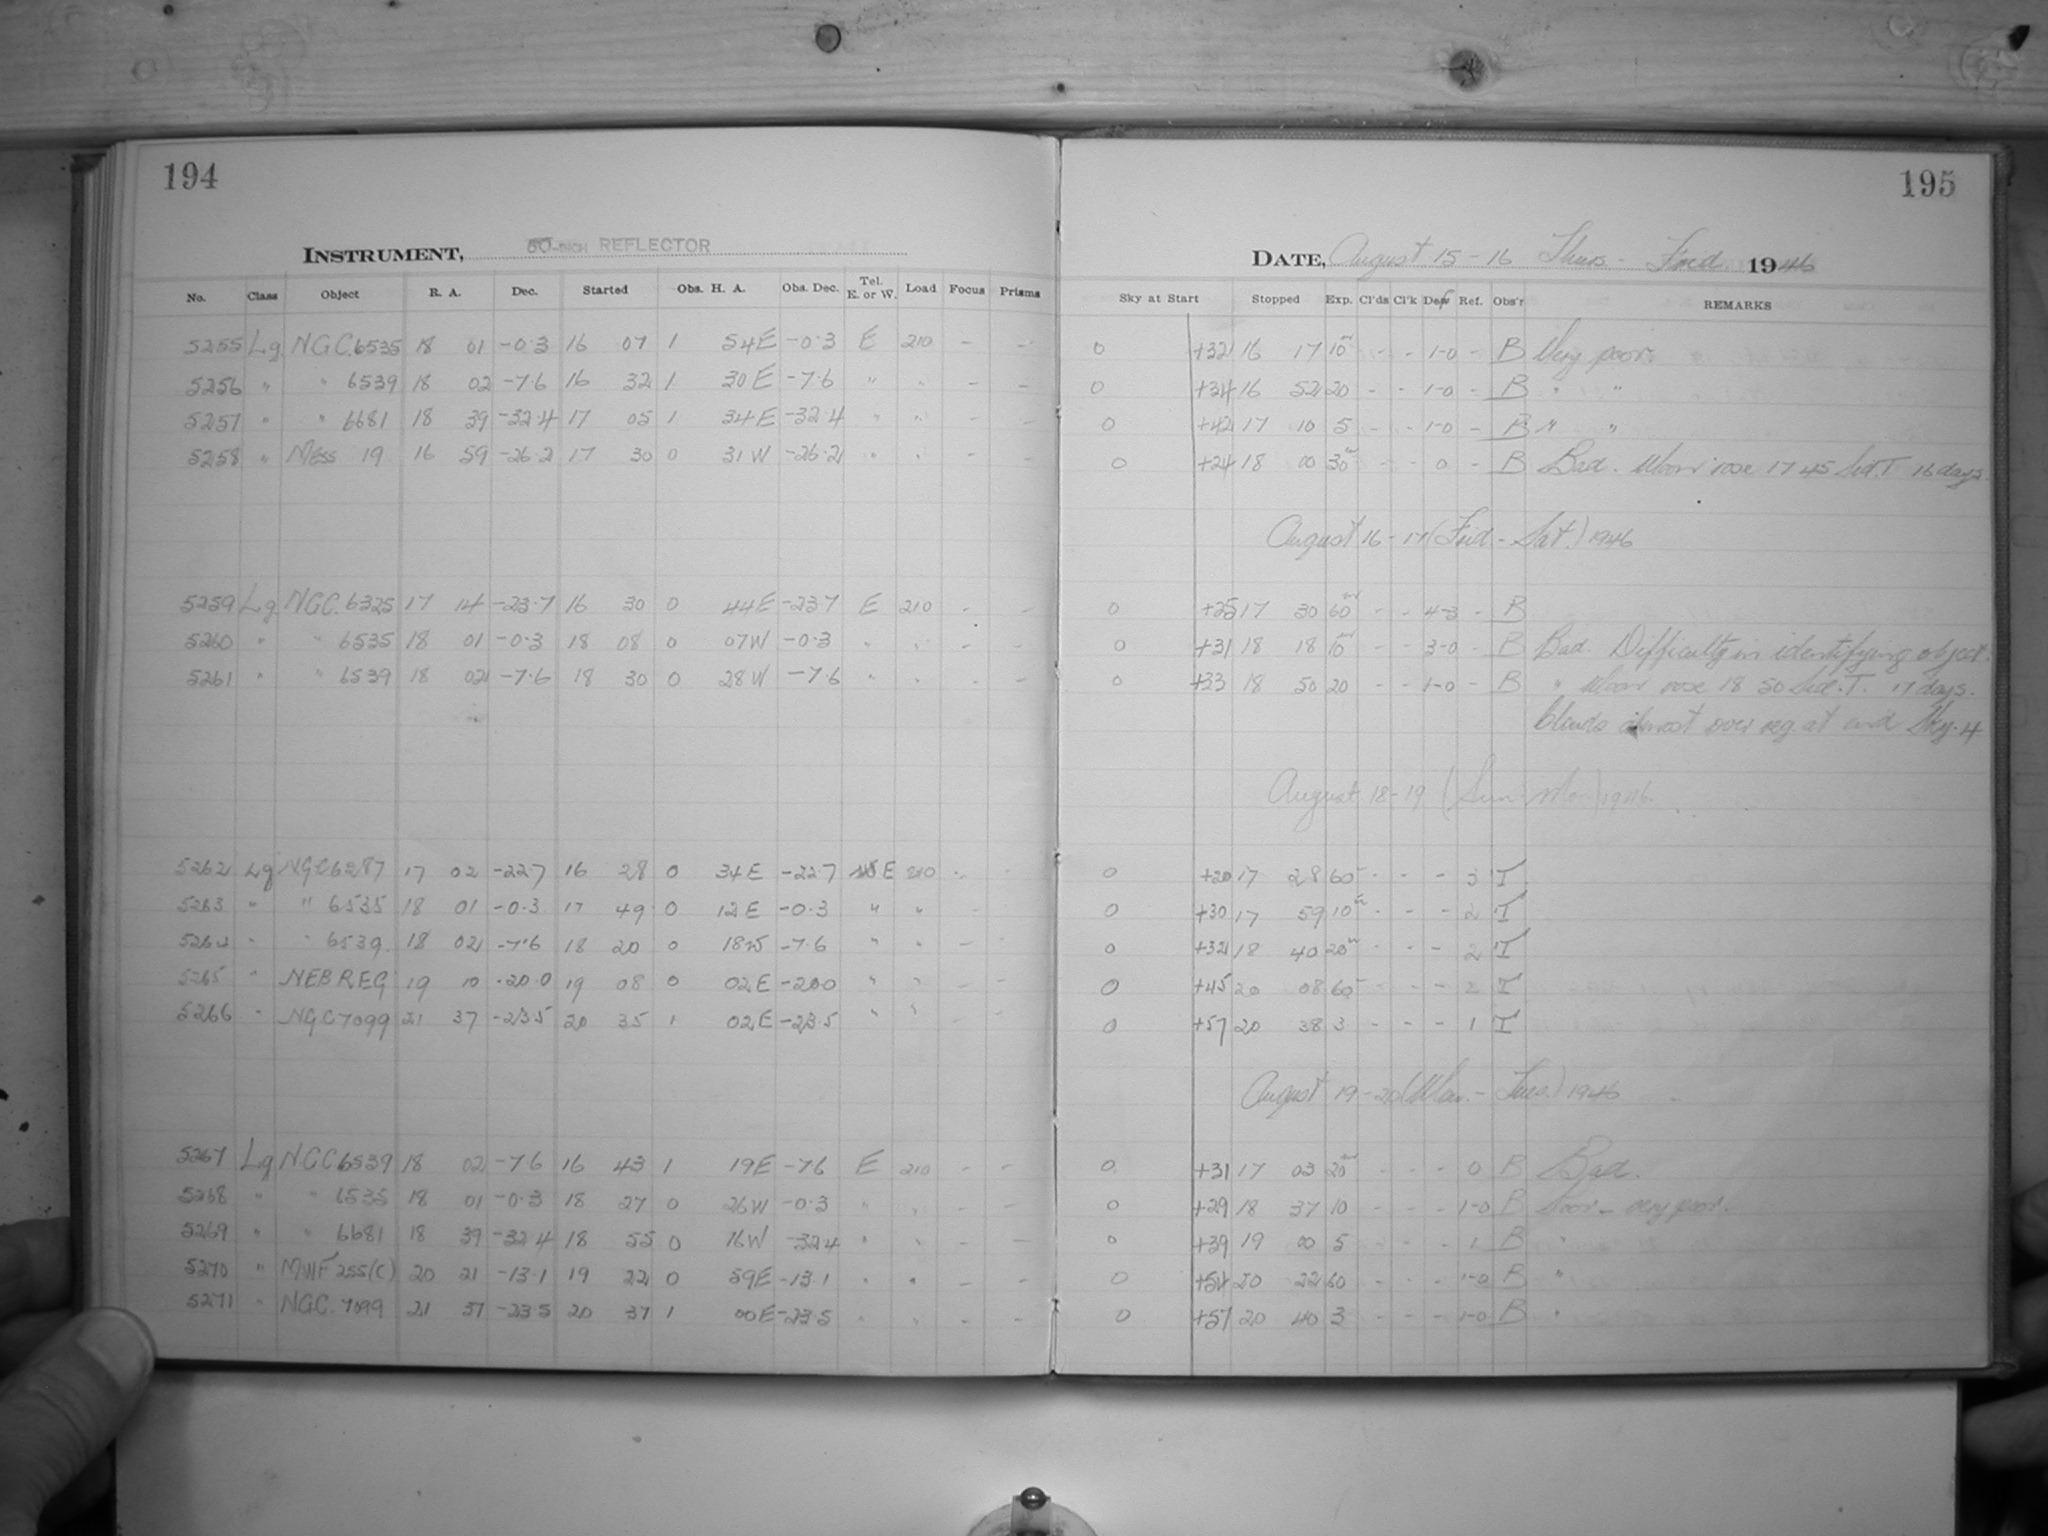 194
195
INSTRUMENT, 60-INCH REFLECTOR
DATE, August 15-16 Thurs - Frid 1946
No. Class Object R. A. Dec. Started Obs. H. A. Obs. Dec. Tel. E. or W. Load Focus Prisms
Sky at Start Stopped Exp. Cl'ds Cl'k Def Ref. Obs'r REMARKS
5255 Lg NGC.6535 18 01 -0.3 16 07 1 54E -0.3 E 210 - - 0 +32 16 17 10m - - 1-0 - B Very poor.
5256 " " 6539 18 02 -7.6 16 32 1 30E -7.6 " " - - 0 +34 16 52 20 - - 1-0 - B " "
5257 " " 6681 18 39 -32.4 17 05 1 34E -32.4 " " - - 0 +42 17 10 5 - - 1-0 - B " "
5258 " Mess 19 16 59 -26.2 17 30 0 31W -26.2 " " - - 0 +24 18 00 30m - - 0 - B Bad. Moon rose 17 45 Sid.T 16 days.
August 16-17 (Frid - Sat.) 1946
5259 Lg NGC.6325 17 14 -23.7 16 30 0 44E -23.7 E 210 - - 0 +25 17 30 60m - - 4-3 - B
5260 " " 6535 18 01 -0.3 18 08 0 07W -0.3 " " - - 0 +31 18 18 10m - - 3-0 - B Bad. Difficulty in identifying object.
5261 " " 6539 18 02 -7.6 18 30 0 28W -7.6 " " - - 0 +33 18 50 20 - - 1-0 - B " Moon rose 18 50 Sid.T. 17 days.
Clouds almost over reg. at end Sky.4
August 18-19 (Sun-Mon) 1946.
5262 Lg NGC6287 17 02 -22.7 16 28 0 34E -22.7 E 210 - - 0 +20 17 28 60 - - - 3 T
5263 " " 6535 18 01 -0.3 17 49 0 12E -0.3 " " 0 +30 17 59 10m - - - 2 T
5264 " " 6539 18 02 -7.6 18 20 0 18W -7.6 " " - - 0 +32 18 40 20m - - - 2 T
5265 " NEB REG 19 10 -20.0 19 08 0 02E -20.0 " " - - 0 +45 20 08 60 - - - 2 T
5266 " NGC7099 21 37 -23.5 20 35 1 02E -23.5 " " - - 0 +57 20 38 3 - - - 1 T
August 19-20 (Mon. - Tues.) 1946
5267 Lg NGC6539 18 02 -7.6 16 43 1 19E -7.6 E 210 - - 0 +31 17 03 20m - - - 0 B Bad.
5268 " " 6535 18 01 -0.3 18 27 0 26W -0.3 " " - - 0 +29 18 37 10 - - - 1-0 B Poor - very poor.
5269 " " 6681 18 39 -32.4 18 55 0 16W -32.4 " " - - 0 +39 19 00 5 - - - 1 B "
5270 " MWF 255(C) 20 21 -13.1 19 22 0 59E -13.1 " " - - 0 +54 20 22 60 - - - 1-0 B "
5271 " NGC.7099 21 37 -23.5 20 37 1 00E -23.5 " " - - 0 +57 20 40 3 - - - 1-0 B "